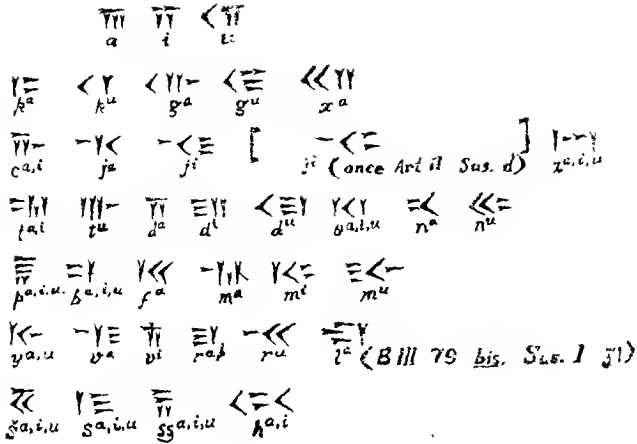 𐎠 𐎡 𐎢
a i u
𐎣 𐎤 𐎥 𐎦 𐎧
kᵃ kᵘ gᵃ gᵘ xᵃ
𐎨 𐎩 𐎪 [ ] 𐏀
cᵃ,ⁱ jᵃ jⁱ jⁱ (once Art II Sus. d) zᵃ,ⁱ,ᵘ
𐎫 𐎬 𐎭 𐎮 𐎯 𐎰 𐎴 𐎵
tᵃ,ⁱ tᵘ dᵃ dⁱ dᵘ θᵃ,ⁱ,ᵘ nᵃ nᵘ
𐎱 𐎲 𐎳 𐎶 𐎷 𐎸
pᵃ,ⁱ,ᵘ bᵃ,ⁱ,ᵘ fᵃ mᵃ mⁱ mᵘ
𐎹 𐎺 𐎻 𐎼 𐎽 𐎾
yᵃ,ᵘ vᵃ vⁱ rᵃ,ⁱ rᵘ lᵃ (BIII 79 bis. Sus. I)
𐏁 𐎿 𐏂 𐏃
šᵃ,ⁱ,ᵘ sᵃ,ⁱ,ᵘ ssᵃ,ⁱ,ᵘ hᵃ,ⁱ